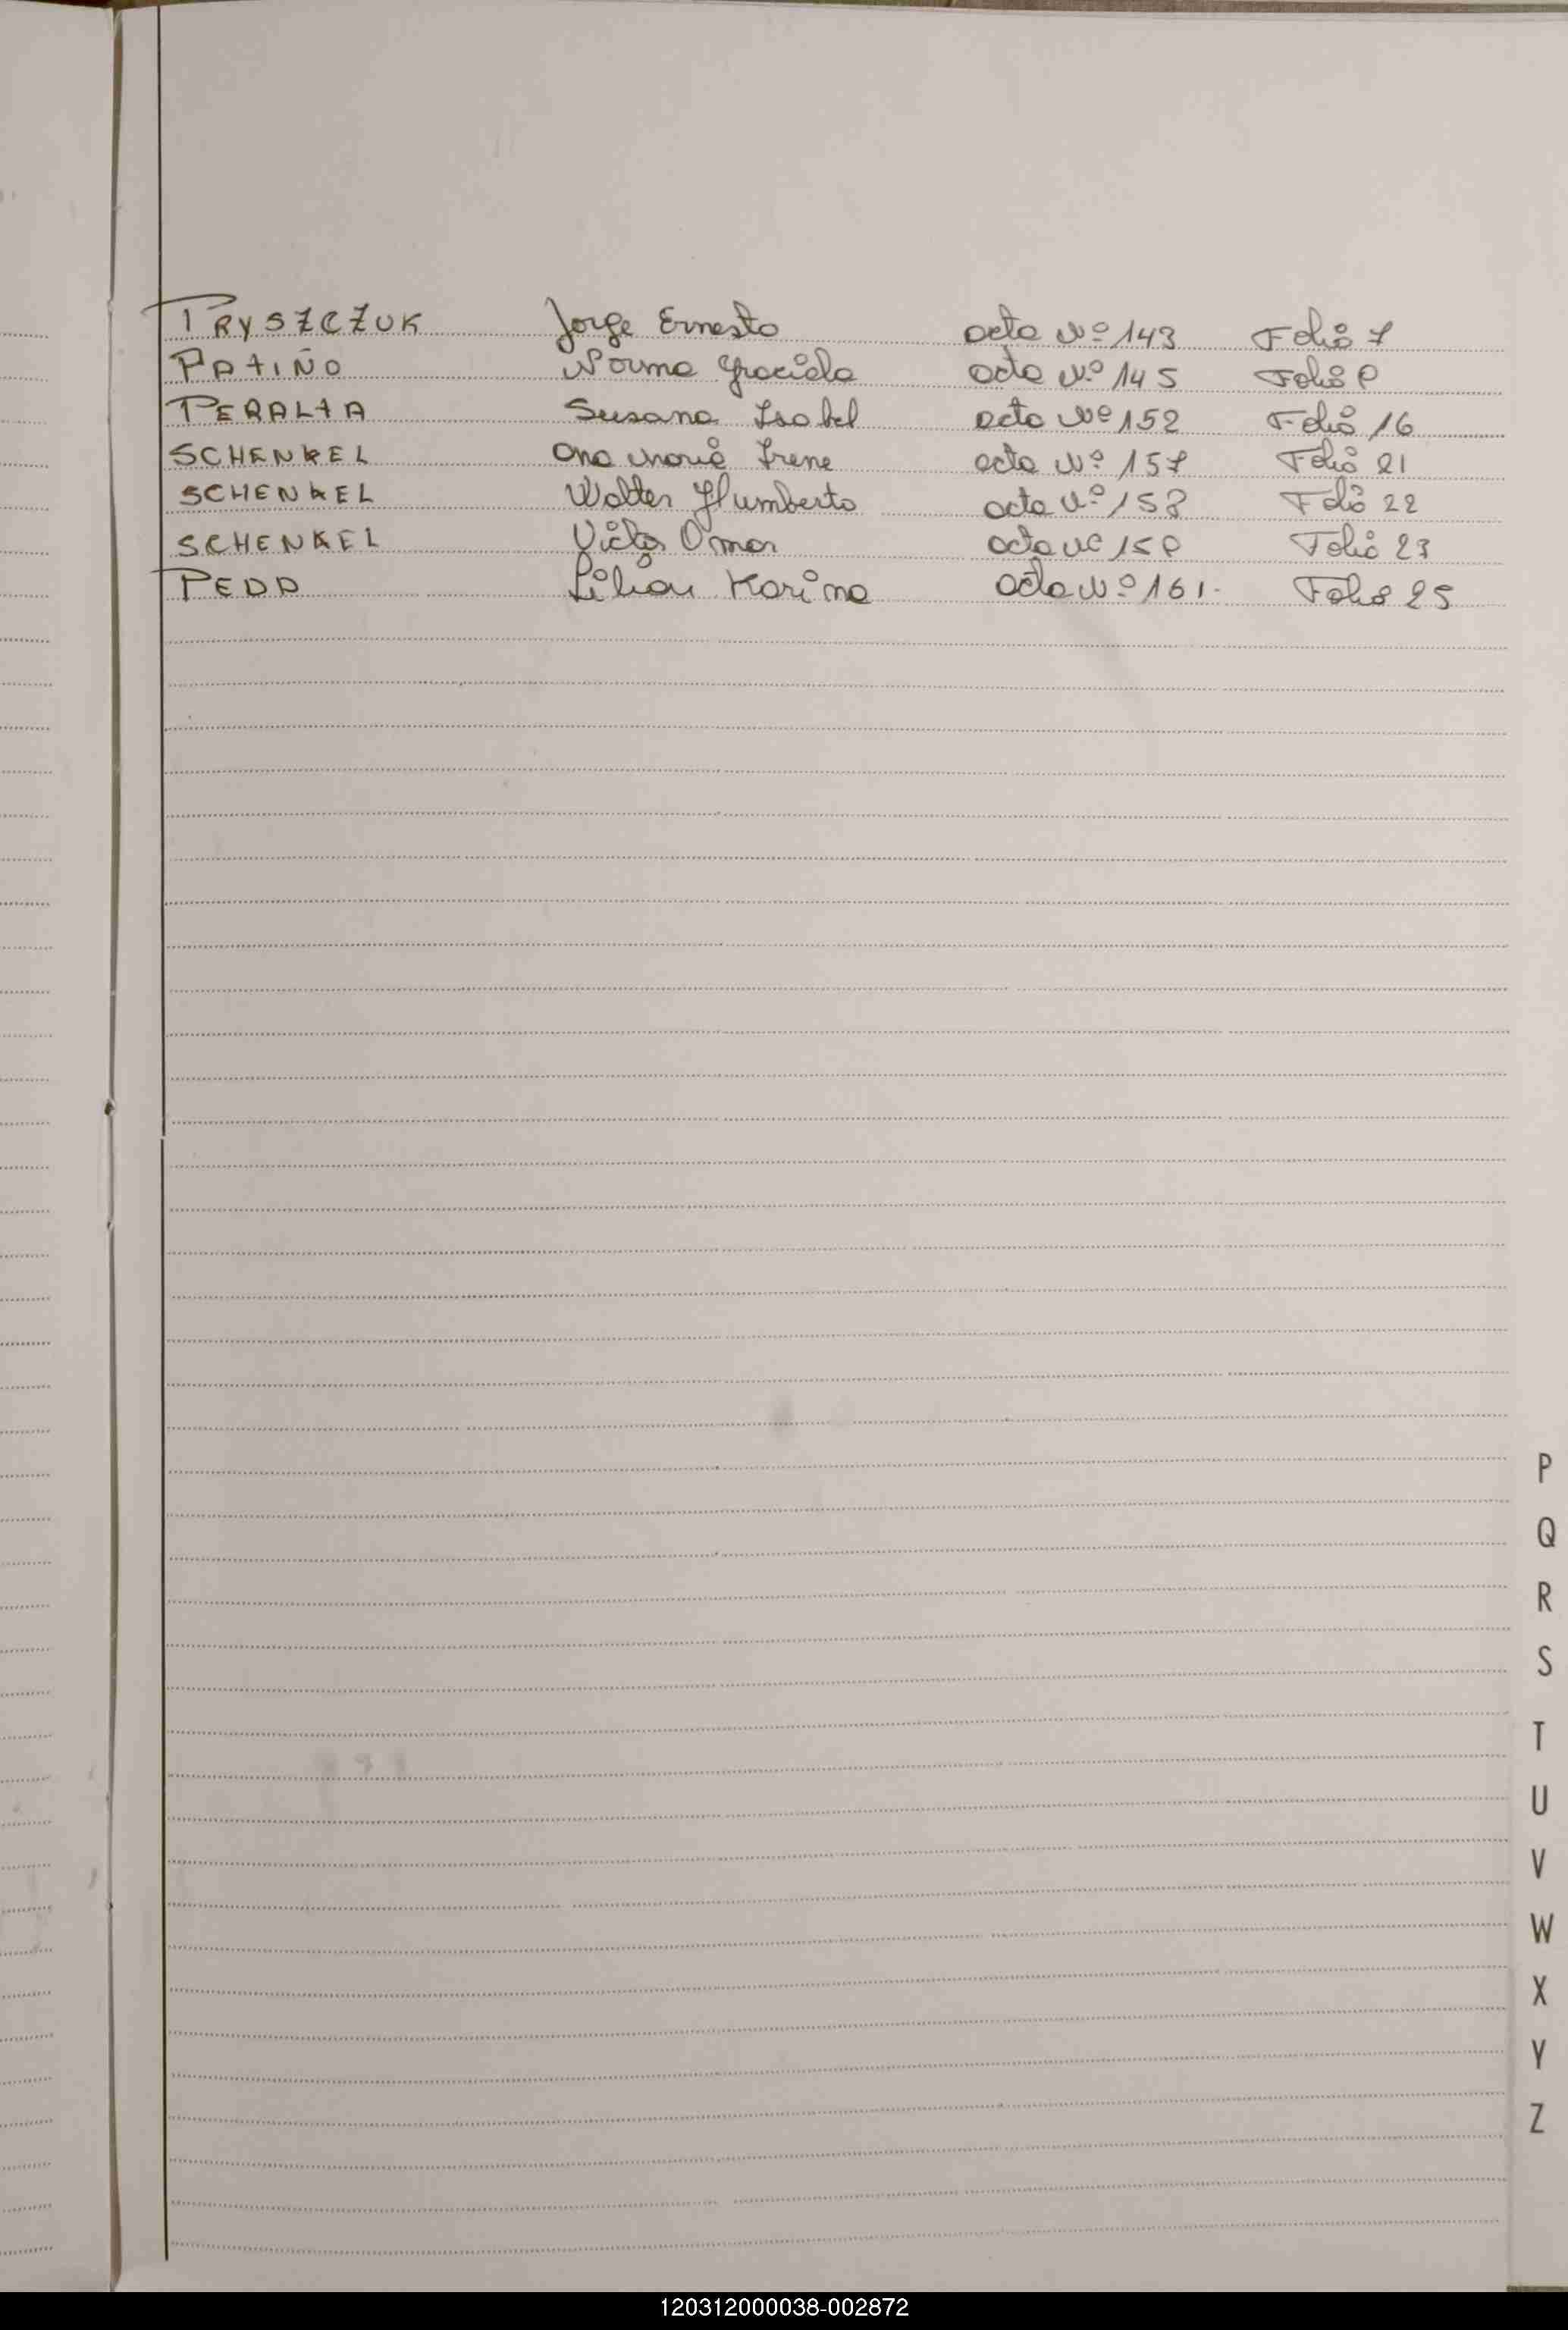 PRYSZCZUK Jorge Ernesto acta Nº 143 Folio 7
PATIÑO Norma Graciela acta Nº 145 Folio 9
PERALTA Susana Isabel acta Nº 152 Folio 16
SCHENKEL Ana María Irene acta Nº 157 Folio 21
SCHENKEL Walter Humberto acta Nº 158 Folio 22
SCHENKEL Victor Omar acta Nº 159 Folio 23
PEDA Lilian Karina acta Nº 161 Folio 25
P
Q
R
S
T
U
V
W
X
Y
Z
120312000038-002872